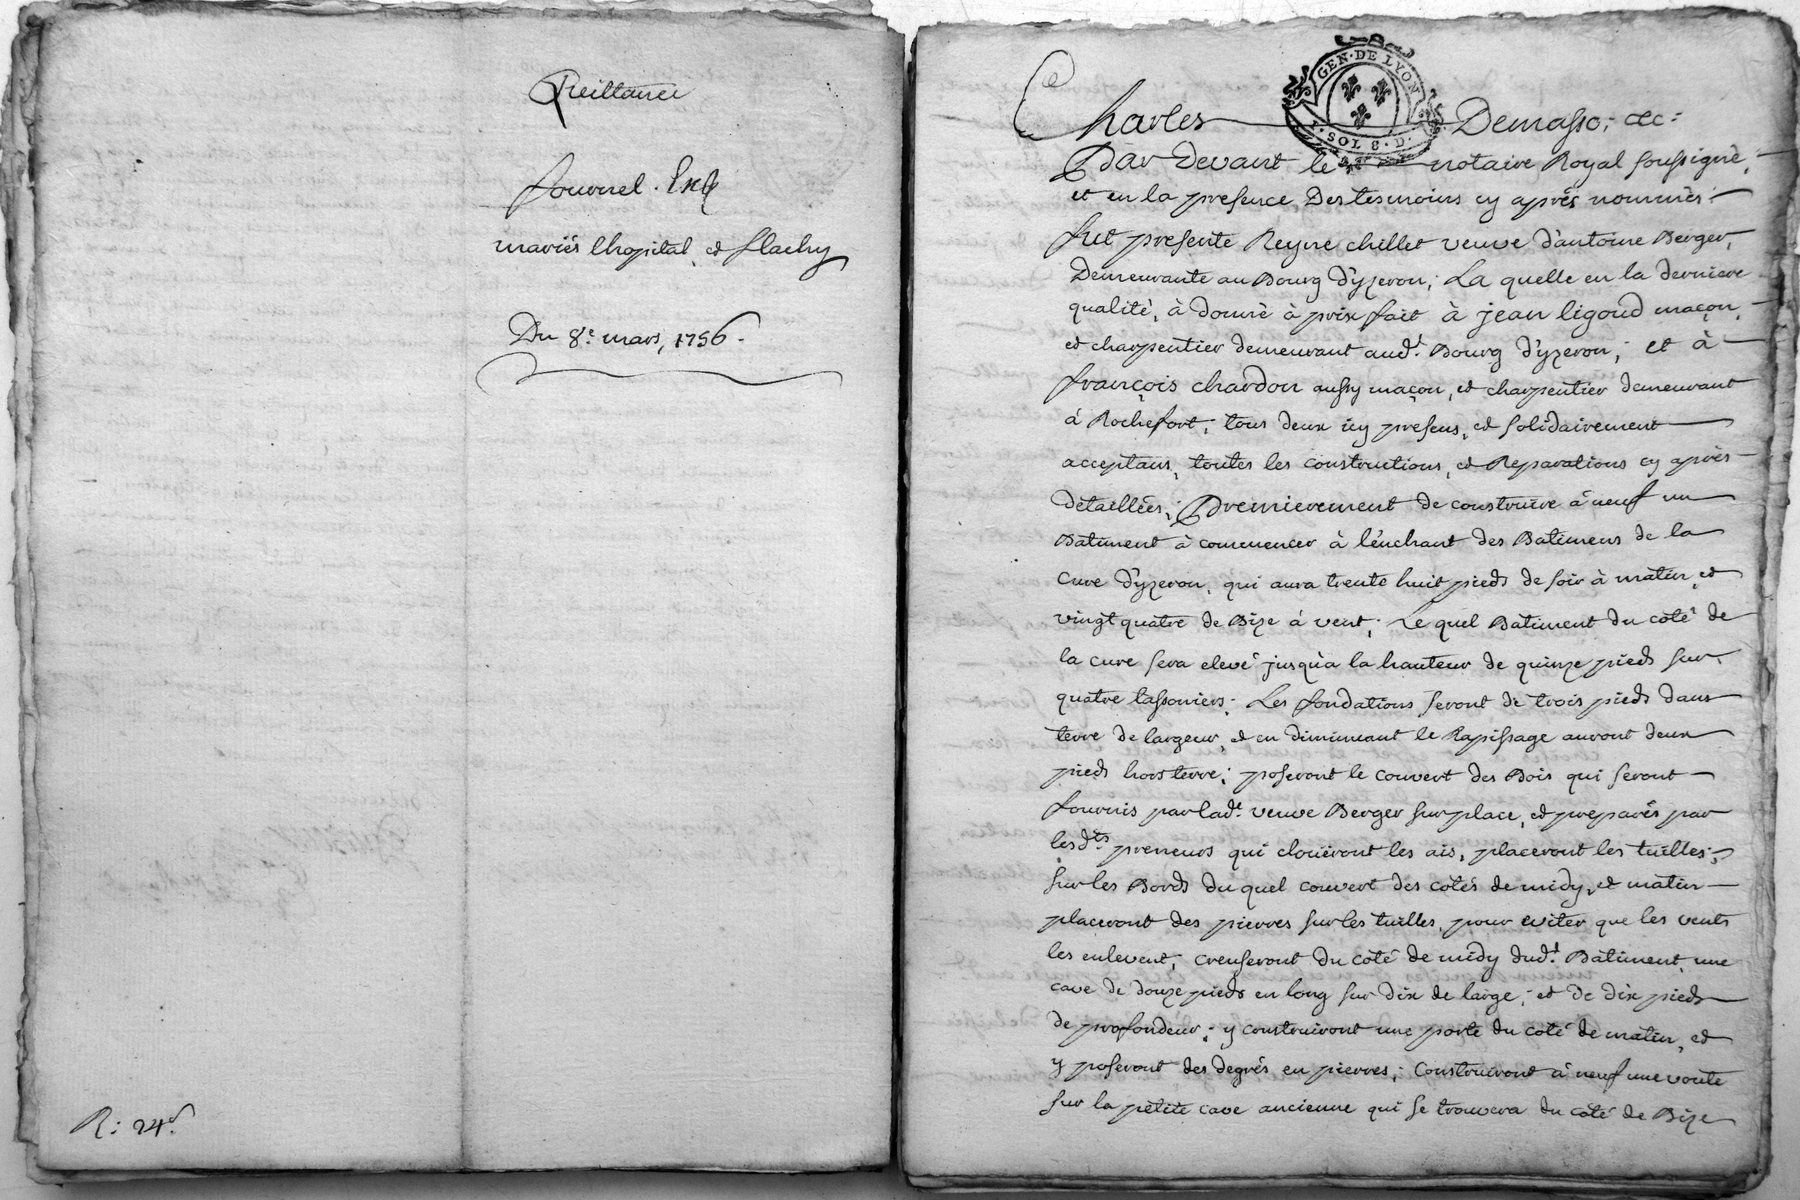 Quittance
fournel. Exp
mariés lhopital, et flachy
Du 8.e mars, 1756.
R: 24s.
GEN. DE LYON
1. SOL 8. D.
Charles Demasso, &c:
Par devant le notaire Royal soussigné,
et en la presence Des tesmoins cy aprés nommés.
fut presente Reyne chillet veuve d'antoine Berger,
Demeurante au Bourg d'yzeron; La quelle en la derniere
qualité, à donné à prix fait à jean ligoud maçon,
et charpentier demeurant aud.t Bourg d'yzeron; et à
françois chardon aussy maçon, et charpentier demeurant
à Rochefort; tous deux icy presens, et solidairement
acceptans, toutes les constructions, et Reparations cy aprés
détaillées; Premierement de construire à neuf un
Batiment à commencer à l'enchant des Batimens de la
cure d'yzeron, qui aura trente huit pieds de soir à matin, et
vingt quatre de Bize à vent; Le quel Batiment du côté de
la cure sera elevé jusqu'a la hauteur de quinze pieds sur
quatre tassoniers; Les fondations seront de trois pieds dans
terre de largeur, et en diminuant le Rapissage auront deux
pieds hors terre; poseront le couvert des Bois qui seront
fournis par lad.e veuve Berger sur place, et preparés par
lesd.ts preneurs qui cloüeront les ais, placeront les tuilles;
sur les Bords du quel couvert des cotés de midy, et matin
placeront des pierres sur les tuilles, pour eviter que les vents
les enlevent; creuseront du coté de midy dud.t Bâtiment, une
cave de douze pieds en long sur dix de large; et de dix pieds
de profondeur; y construiront une porte du coté de matin, et
y poseront des degrés en pierres; Construiront à neuf une voute
sur la petite cave ancienne qui se trouvera du côté de Bize